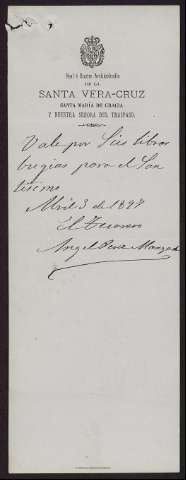 Real é Ilustre Archicofradía
DE LA
SANTA VERA-CRUZ
SANTA MARÍA DE GRACIA
Y NUESTRA SEÑORA DEL TRASPASO.
Vale por Seis libras
bugias para el San
tísimo
Abril 3 de 1898
El Tesorero
Angel Perez